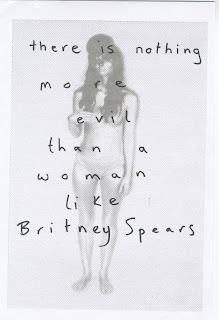 there is nothing
more
evil
than a
woman
like
Britney Spears